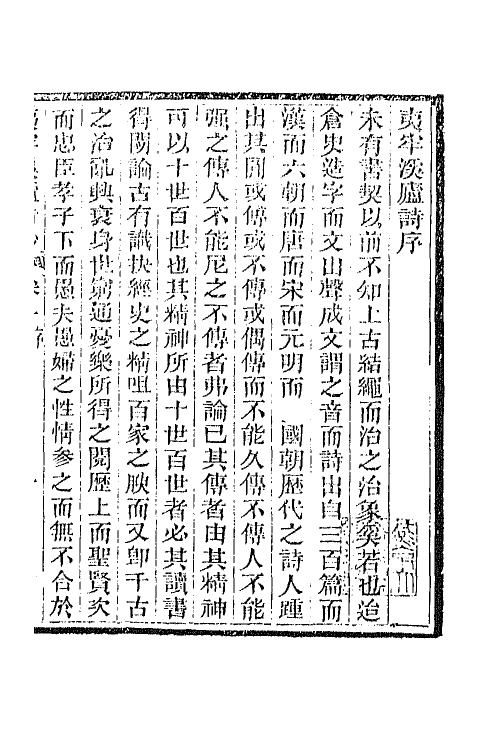 夷牢溪廬詩序
未有書契以前不知上古結繩而治之治象奚若也迨
倉史造字而文出聲成文謂之音而詩出自三百篇而
漢而六朝而唐而宋而元明而 國朝歷代之詩人踵
出其間或傳或不傳或偶傳而不能久傳不傳人不能
强之傳人不能尼之不傳者弗論已其傳者由其精神
可以十世百世也其精神所由十世百世者必其讀書
得間論古有識抉經史之精咀百家之腴而又卽千古
之治亂興衰身世窮通憂樂所得之閱歷上而聖賢次
而忠臣孝子下而愚夫愚婦之性情參之而無不合於